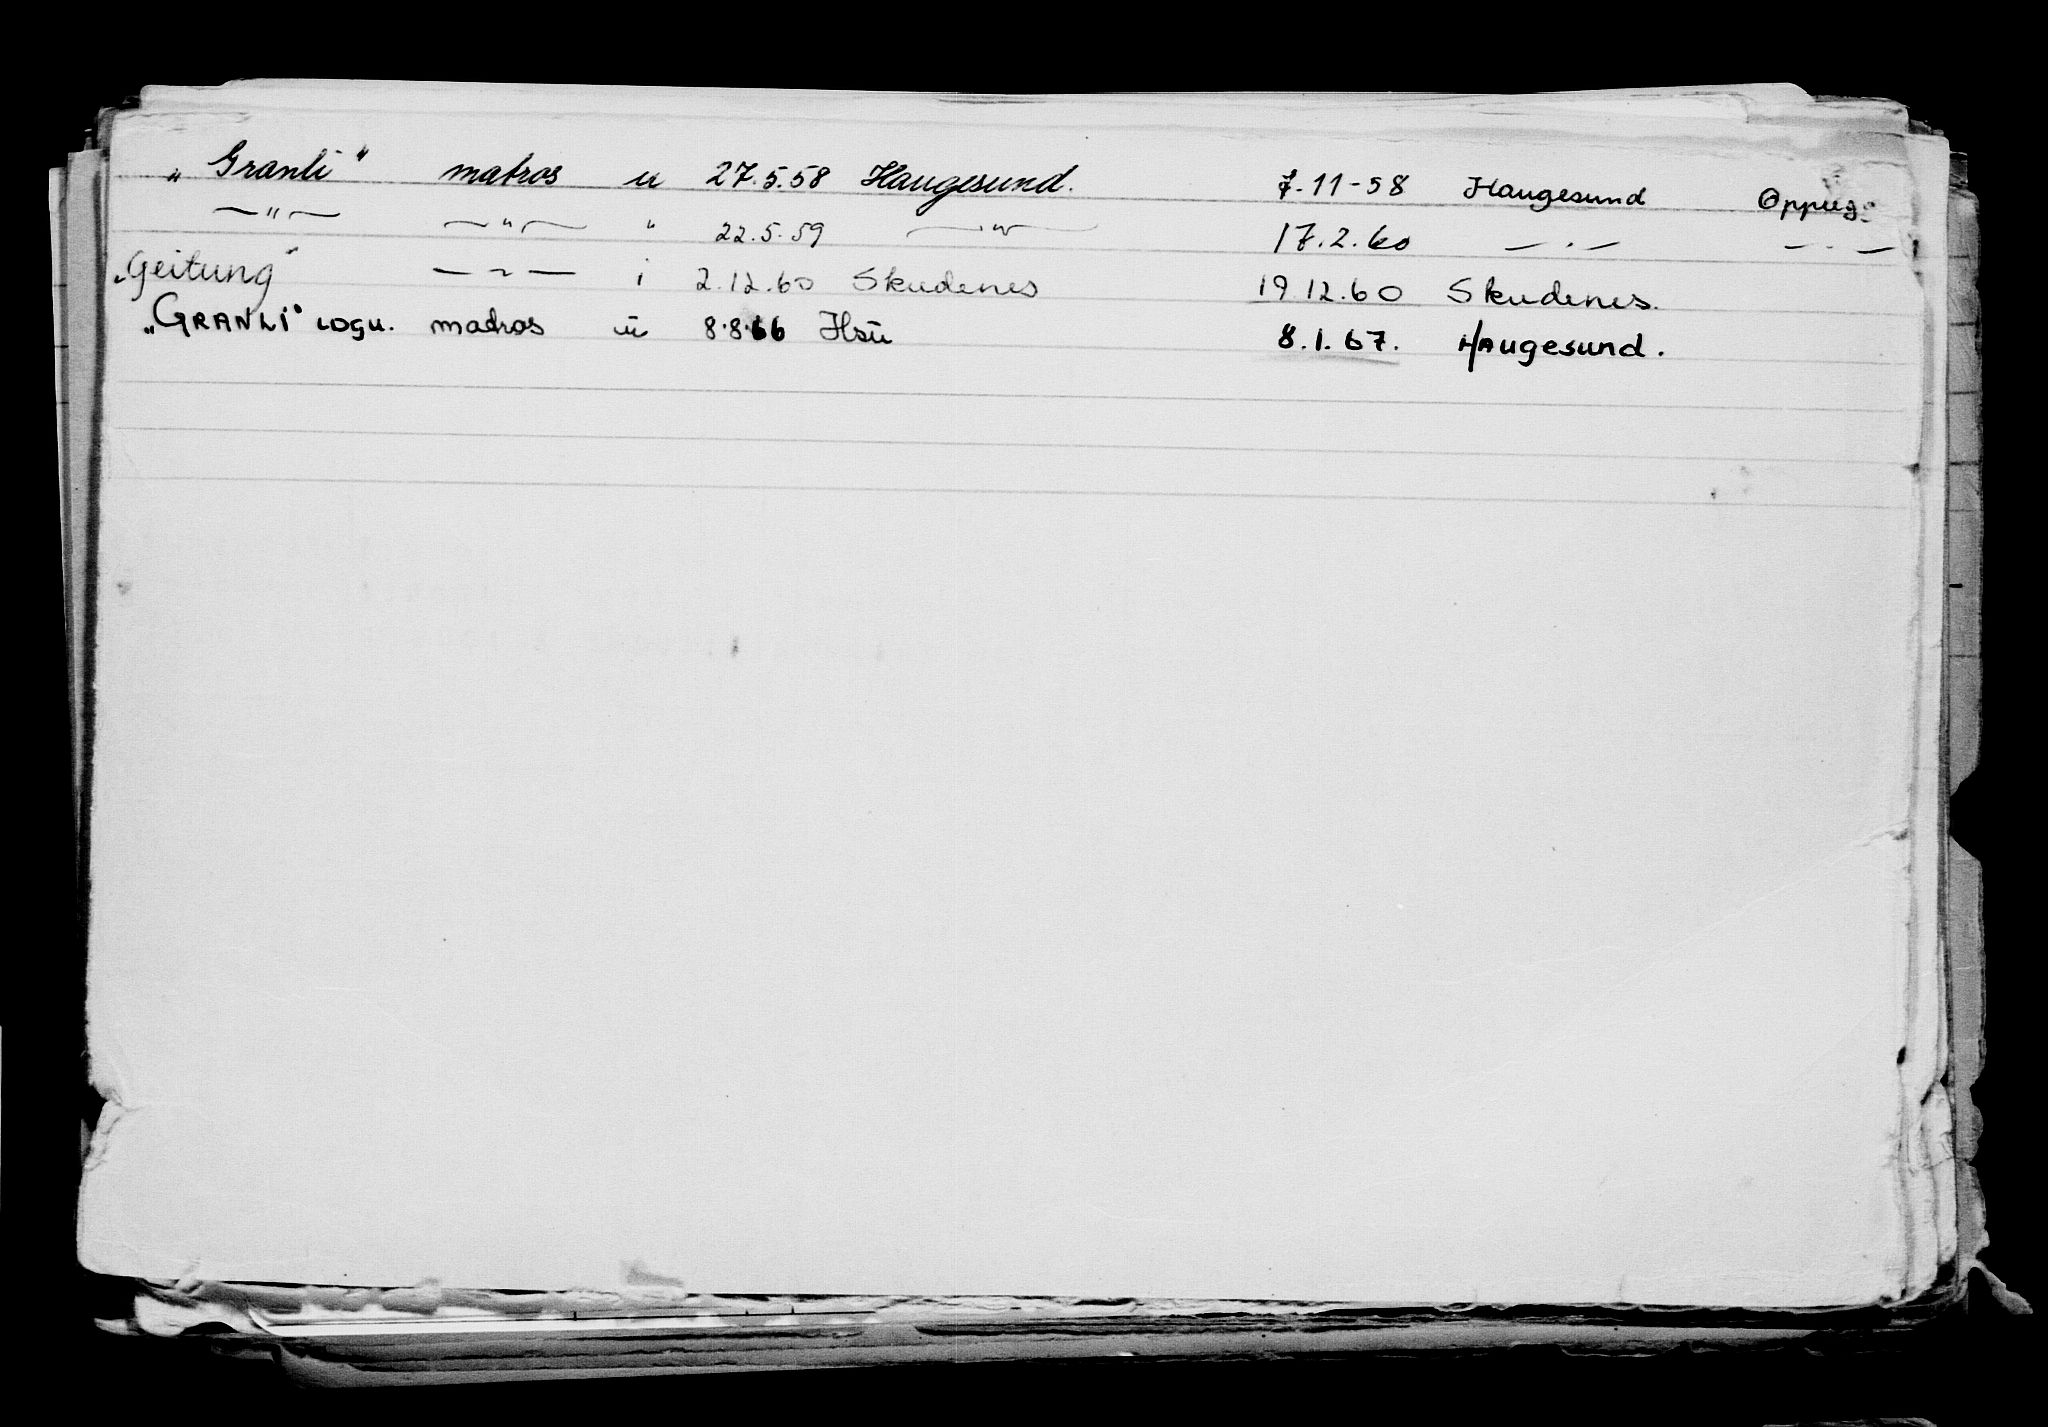 „Granli“ matros u 27.5.58 Haugesund. 7.11-58 Haugesund Oppsig.
—"— —"— " 22.5.59 —"— 17.2.60 —"— —"—
„Geitung“ —"— i 2.12.60 Skudenes 19.12.60 Skudenes.
„GRANLI“ LDGU. madros u 8.8.66 Hsu 8.1.67. HAugesund.